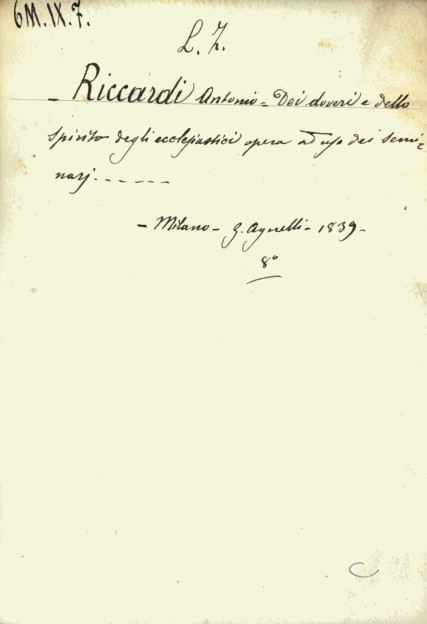 6M.IX.7.
L. Z.
- Riccardi Antonio = Dei doveri e dello
spirito degli ecclesiastici opera ad uso dei semi=
narj - - - - - -
- Milano - G. Agnelli - 1839 -
8°